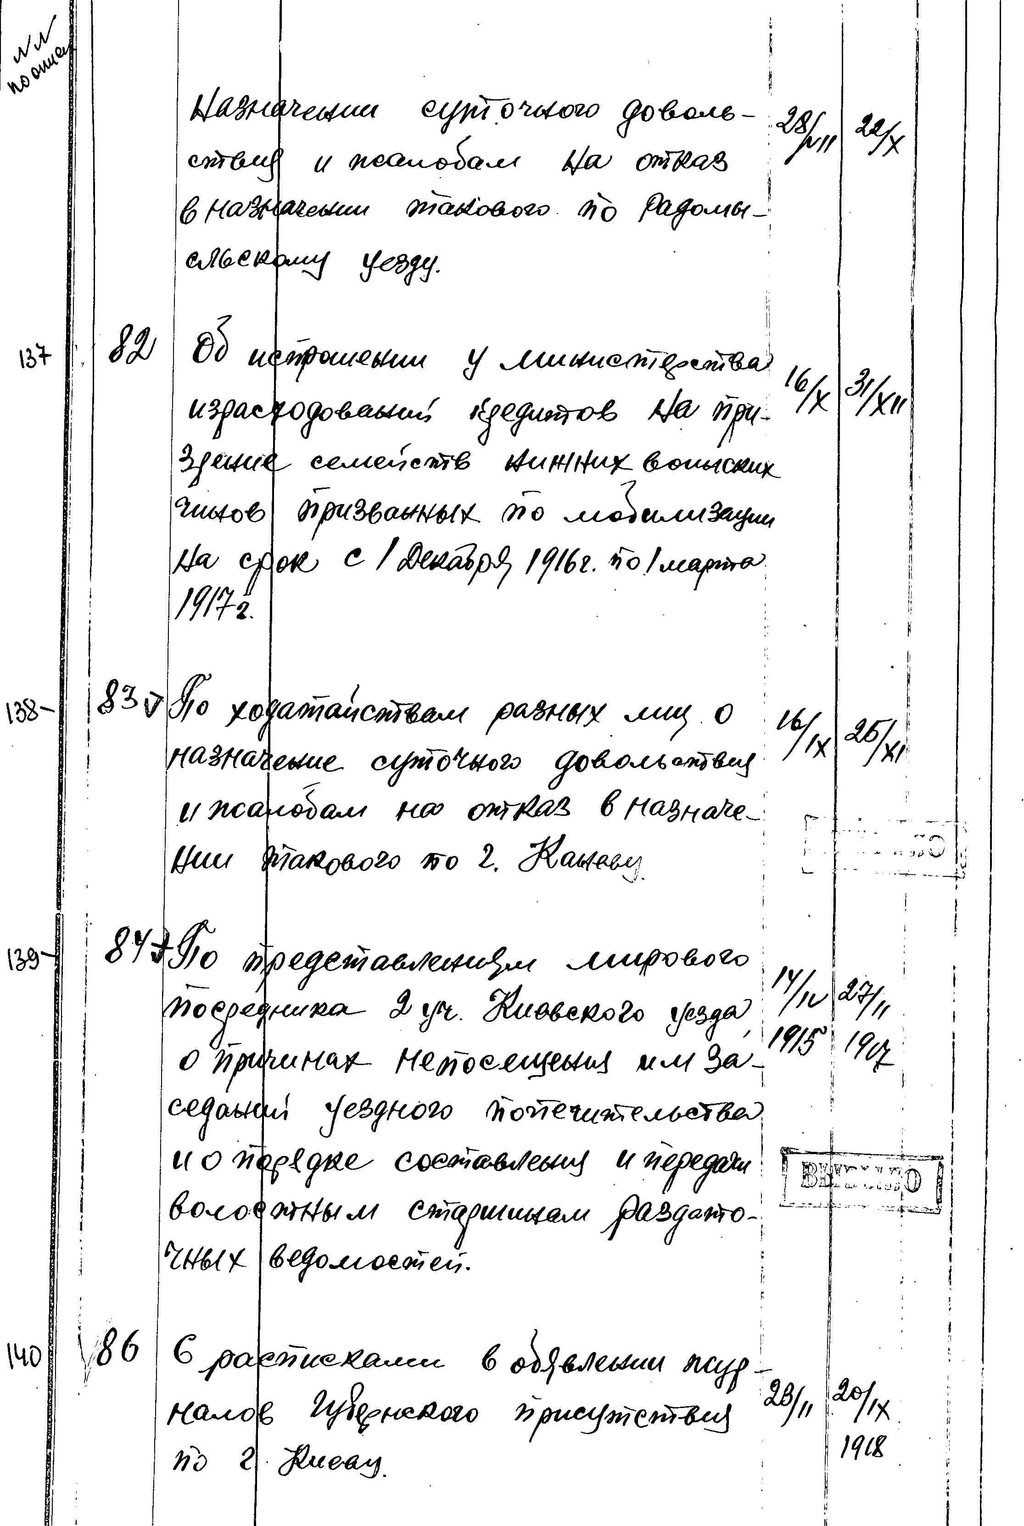 NN
по описи
Назначении суточного доволь- 28/VII 22/X
ствия и жалобам на отказ
в назначении такового по Радомы-
сльскому уезду.
137 82 Об испрошении у министерства 16/X 31/XII
израсходований кредитов на при-
зрение семейств нижних воинских
чинов призванных по мобилизации
на срок с 1 Декабря 1916г. по 1 марта
1917г.
138- 83 По ходатайствам разных лиц о 16/IX 25/XI
назначение суточного довольствия
и жалобам на отказ в назначе-
нии такового по г. Каневу
139- 84 По представлениям мирового
посредника 2 уч. Киевского уезда 14/IV 27/II
о причинах непосещения им за- 1915 1917
седаний уездного попечительства
и о порядке составления и передачи
волостным старшинам раздато-
чных ведомостей.
140 86 С расписками в объявлении жур-
налов Губернского присутствия 23/II 20/IX
по г. Киеву. 1918